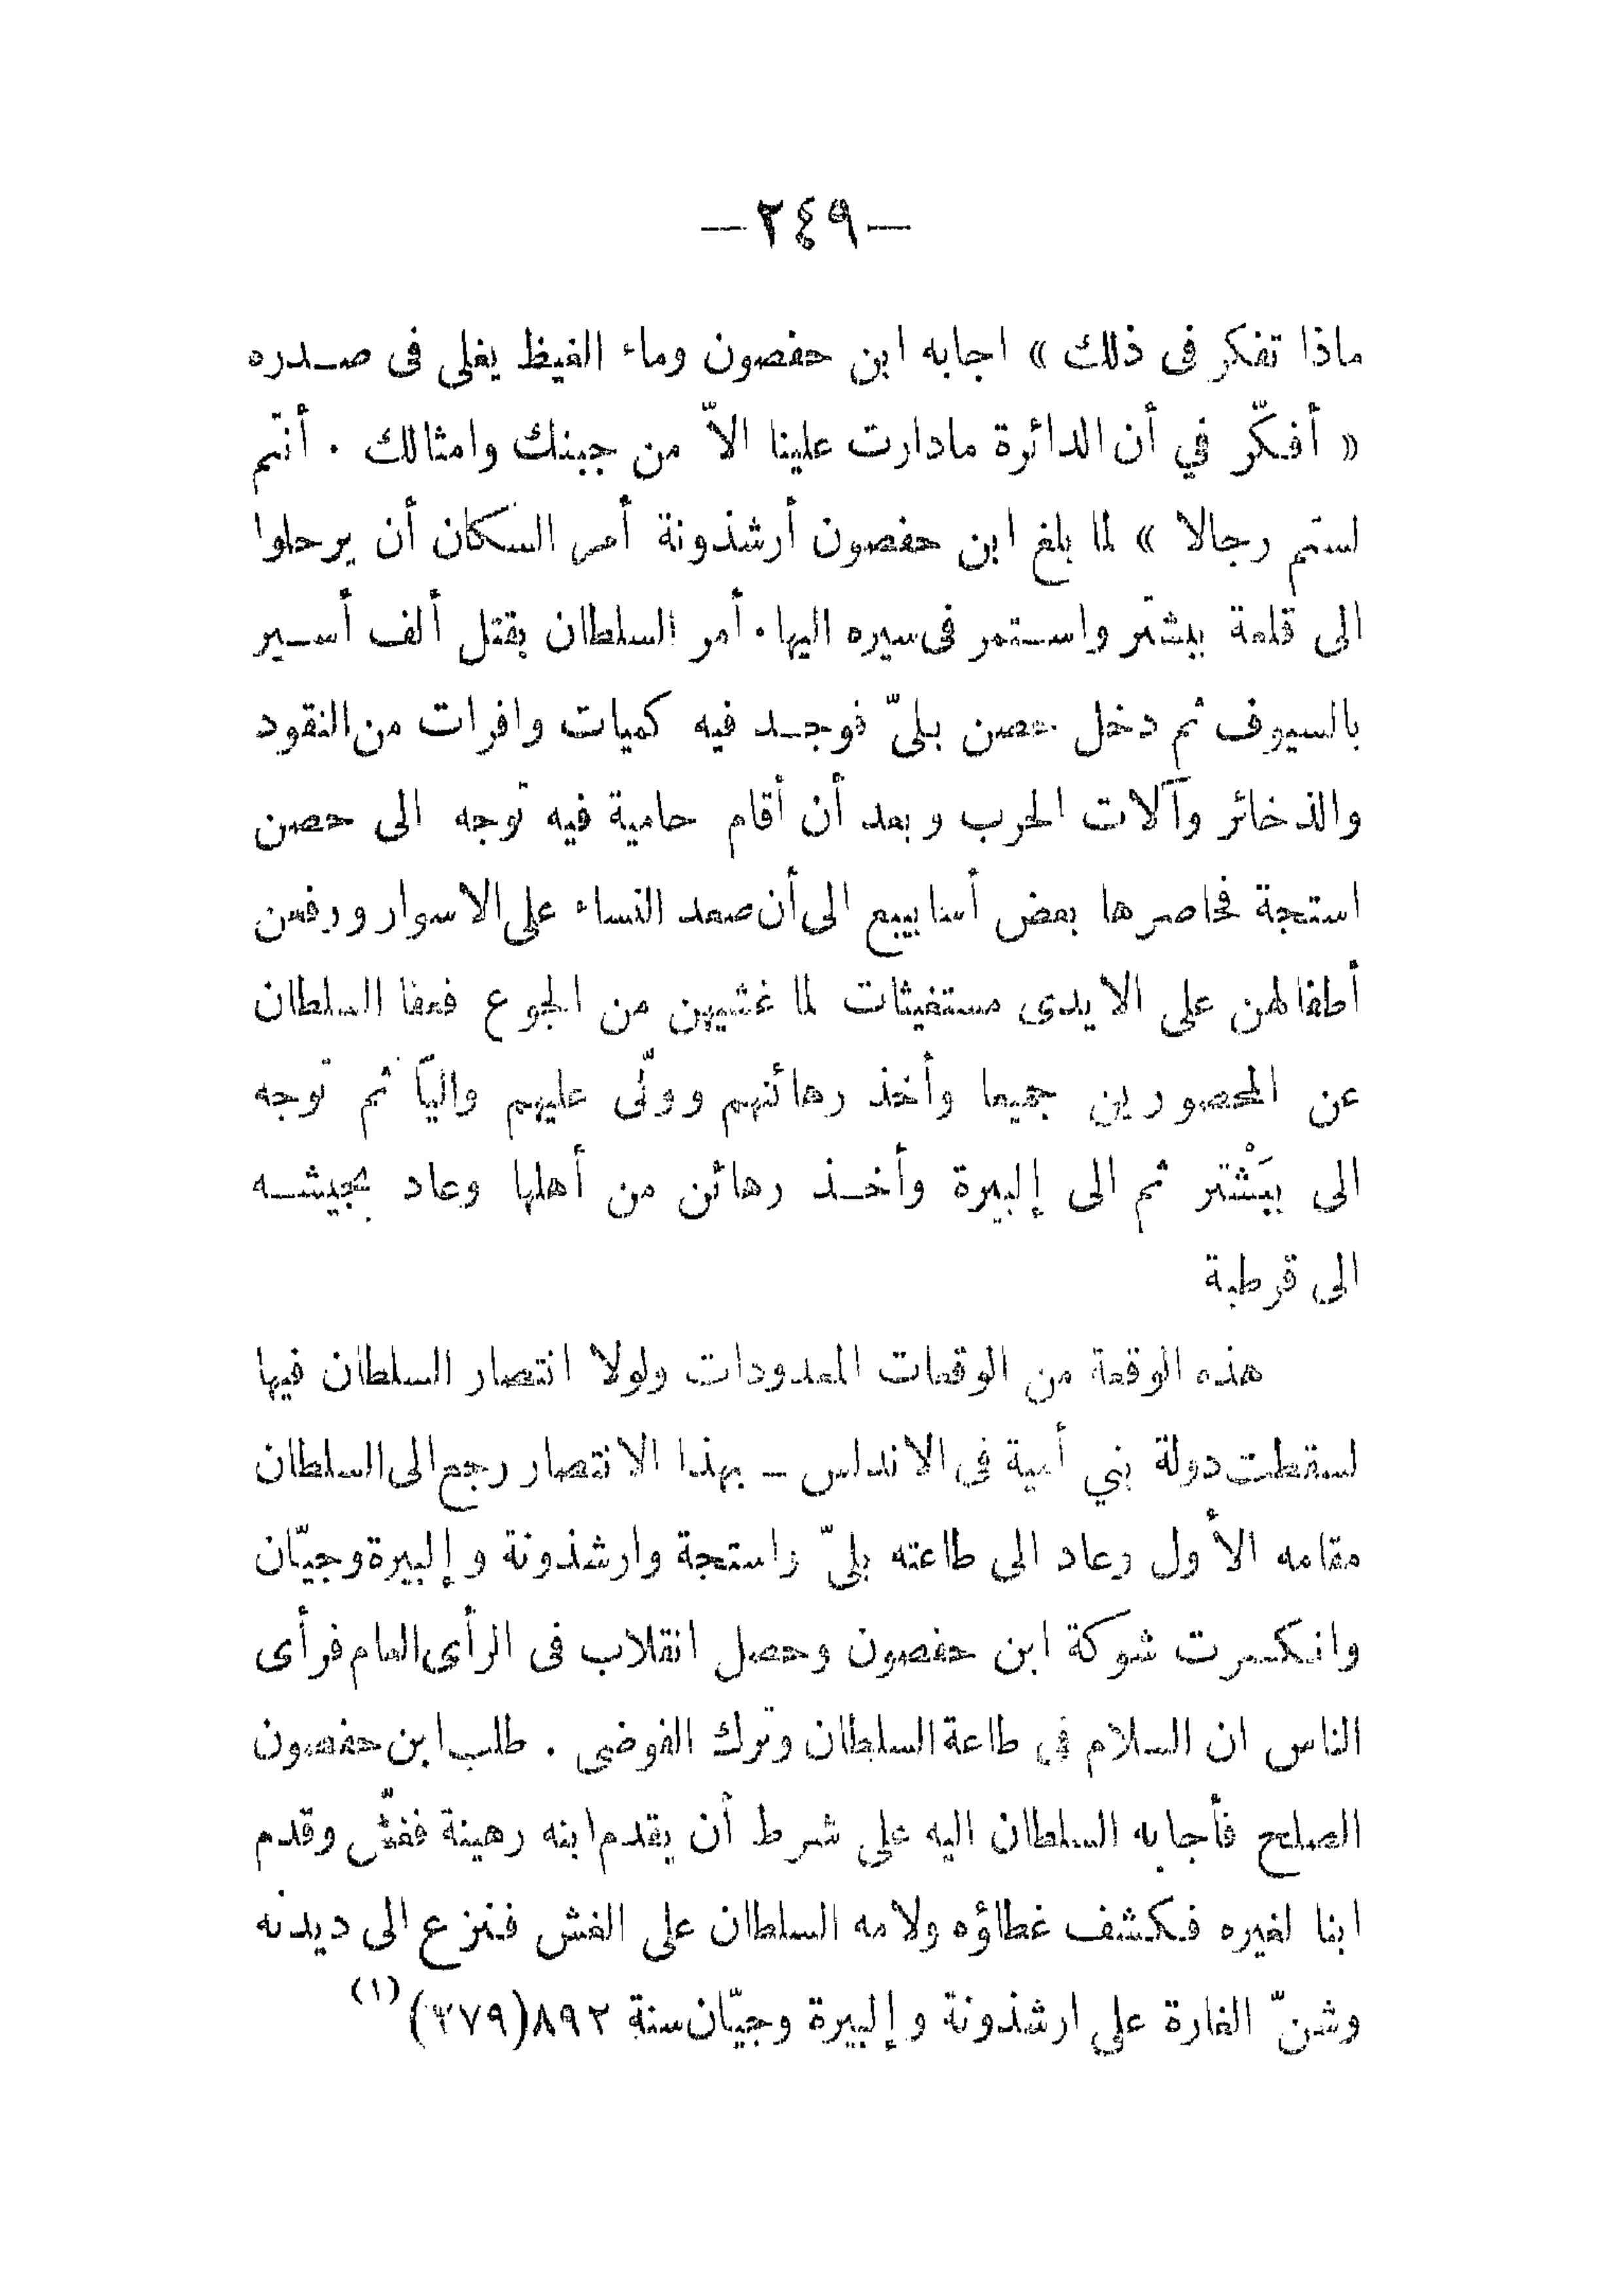 —٢٤٩—
ماذا تفكر فى ذلك » اجابه ابن حفصون وماء الغيظ يغلى فى صدره
« أفكّر في أن الدائرة مادارت علينا الاّ من جبنك وامثالك . أنتم
لستم رجالا » لما بلغ ابن حفصون أرشذونة أمر السكان أن يرحلوا
الى قلعة ببشتر واستمر فى سيره اليها . أمر السلطان بقتل ألف أسير
بالسيوف ثم دخل حصن بلىّ فوجد فيه كميات وافرات من النقود
والذخائر وآلات الحرب وبعد أن أقام حامية فيه توجه الى حصن
استجة فحاصرها بعض أسابيع الى أن صعد النساء على الاسوار ورفعن
أطفالهن على الايدى مستغيثات لما غشيهن من الجوع فعفا السلطان
عن المحصورين جميعا وأخذ رهائنهم وولّى عليهم والياً ثم توجه
الى ببَشْتر ثم الى إلبيرة وأخذ رهائن من أهلها وعاد بجيشه
الى قرطبة
هذه الوقعة من الوقعات المعدودات ولولا انتصار السلطان فيها
لسقطت دولة بني أمية فى الاندلس ـ بهذا الانتصار رجع الى السلطان
مقامه الأول وعاد الى طاعته بلىّ واستجة وارشذونة وإلبيرة وجيّان
وانكسرت شوكة ابن حفصون وحصل انقلاب فى الرأى العام فرأى
الناس ان السلام فى طاعة السلطان وترك الفوضى . طلب ابن حفصون
الصلح فأجابه السلطان اليه على شرط أن يقدم ابنه رهينة فغشّ وقدم
ابنا لغيره فكشف غطاؤه ولامه السلطان على الغش فنزع الى ديدنه
وشنّ الغارة على ارشذونة وإلبيرة وجيّان سنة ٨٩٢(٢٧٩) (١)